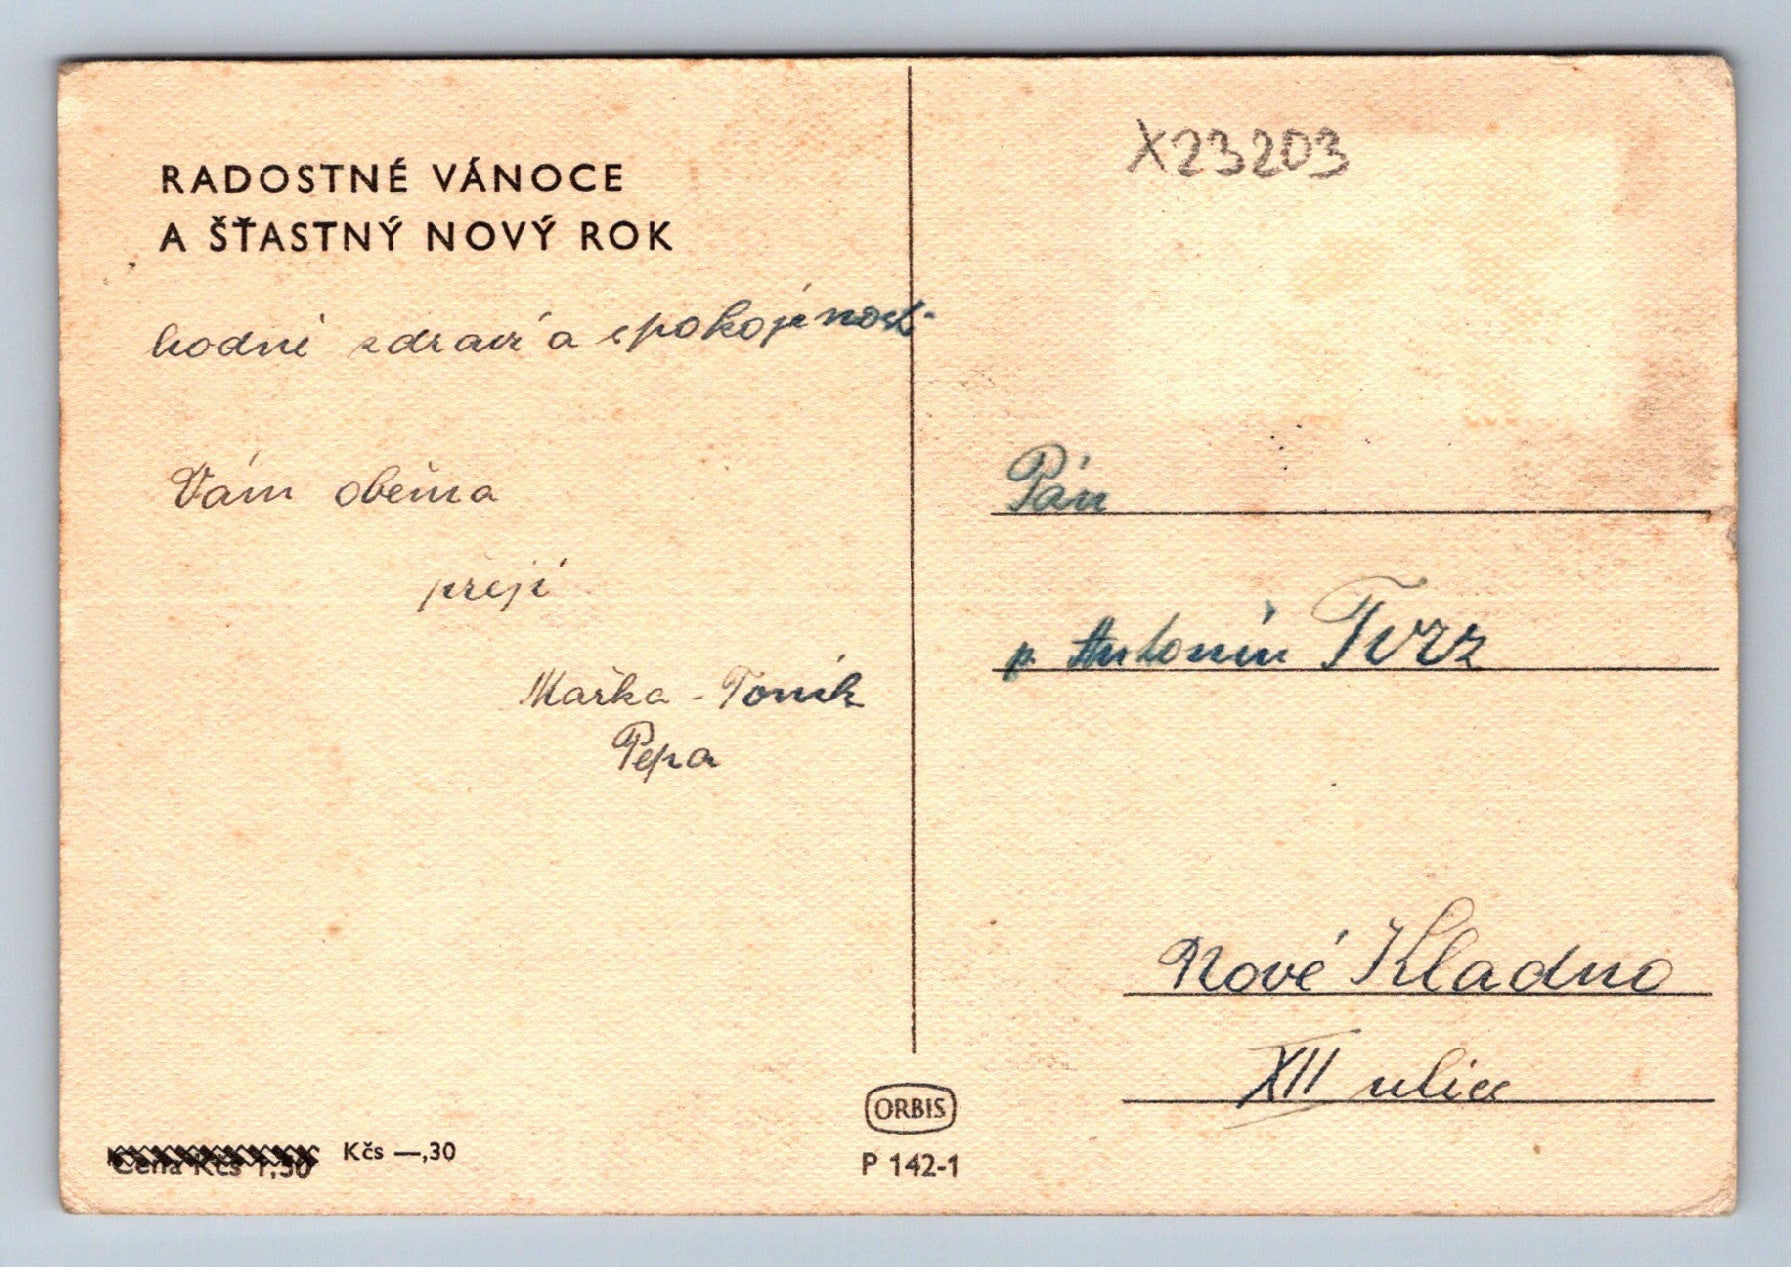 RADOSTNÉ VÁNOCE
A ŠŤASTNÝ NOVÝ ROK
hodně zdraví a spokojenost
Vám oběma
přejí
Mařka - Toník
Pepa
X23203
Pán
p. Antonín Tvrz
Nové Kladno
XII ulice
Cena Kčs 1,50 Kčs —,30
ORBIS
P 142-1